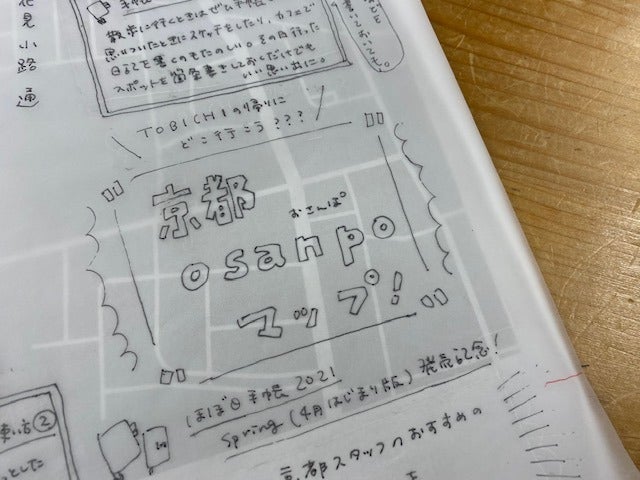 花見小路通
散歩に行くときはぜひ手帳
思いついたときにスケッチをしたり、カフェで
日記を書くのもたのしい。その日行った
スポットを箇条書きしておくだけでも
いい思い出に。
TOBICHIの帰りに
どこ行こう???
京都
おさんぽ
osanpo
マップ!
ほぼ日手帳 2021
Spring (4月はじまり版) 発売記念!
京都スタッフのおすすめの
使い方②